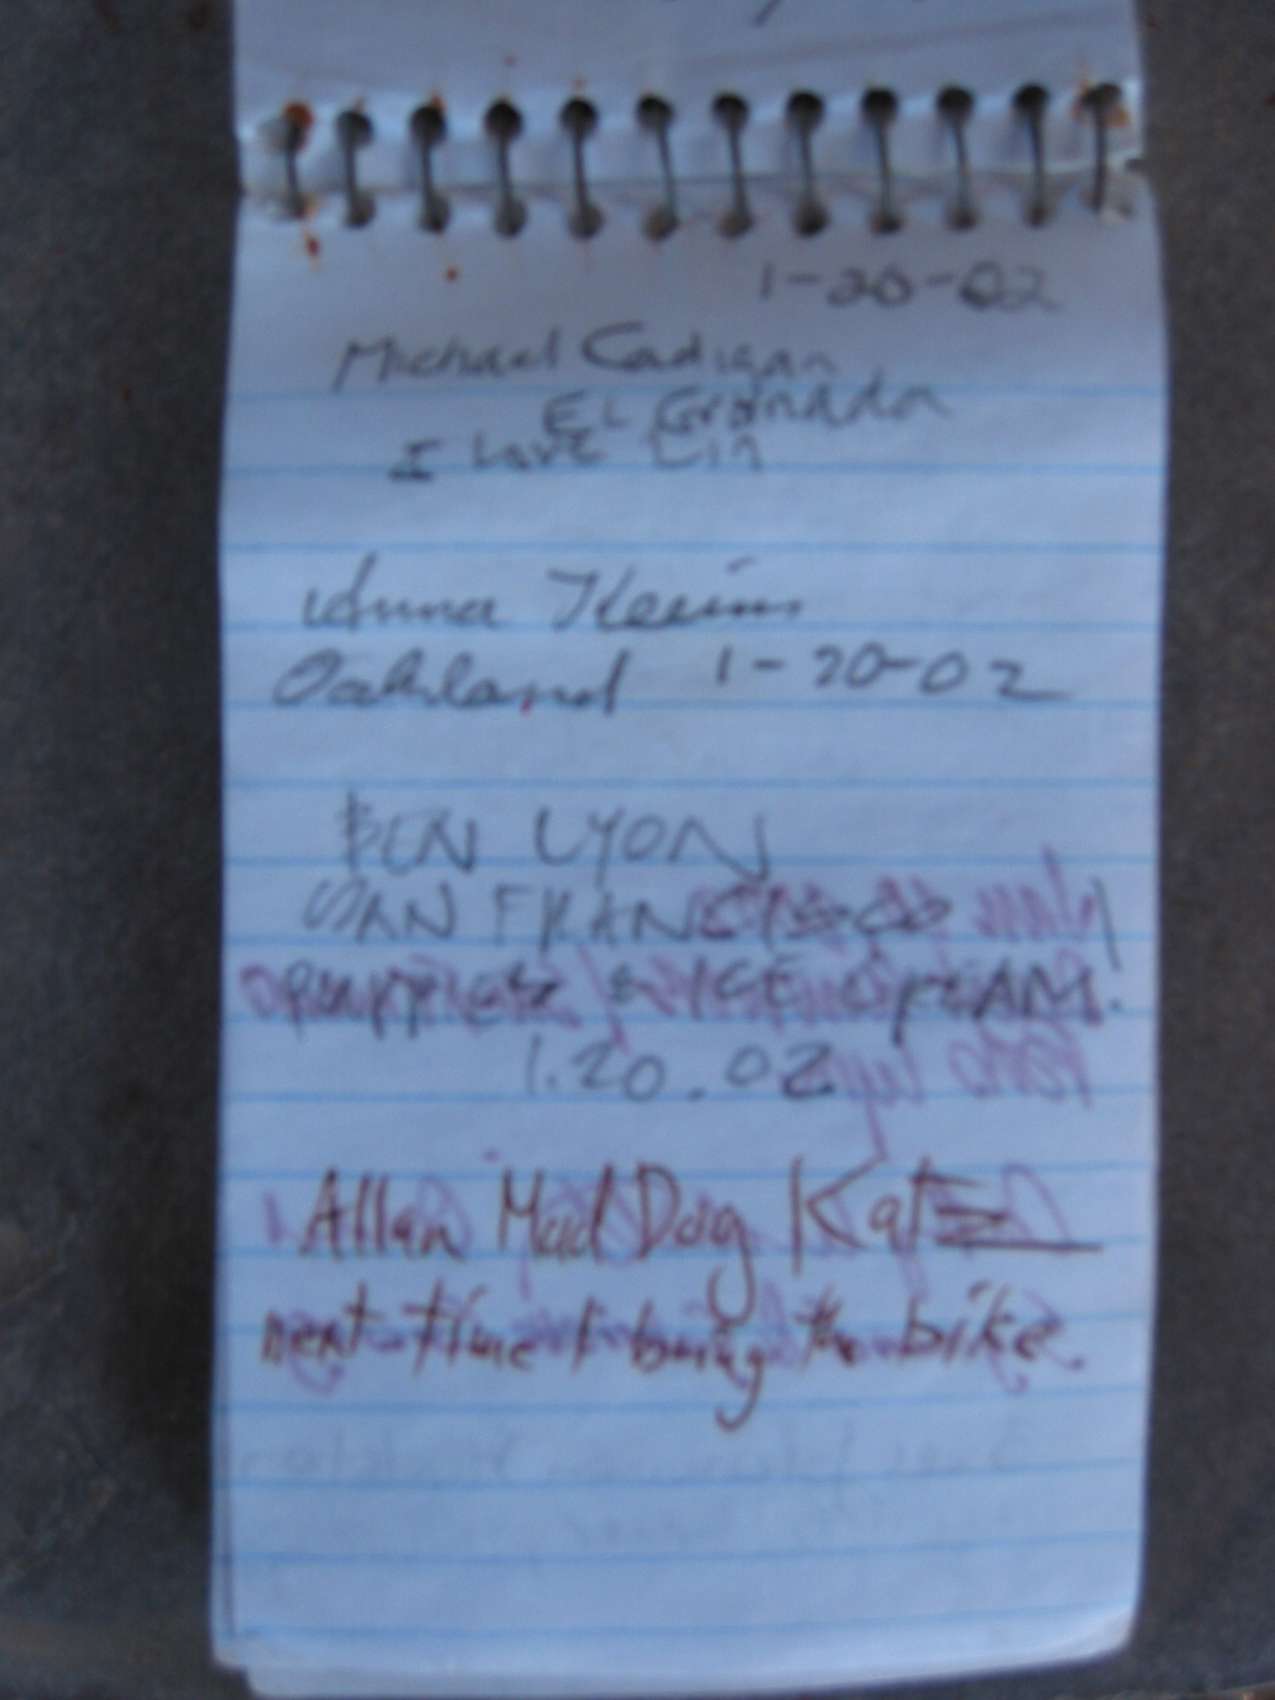 1-20-02
Michael Cadigan
El Granada
I Love Lin
Anna
Oakland 1-20-02
BEN LYON
SAN FRANCISCO
& ICE CREAM.
1.20.02
Allan Mad Dog Katz
next time I bring the bike.